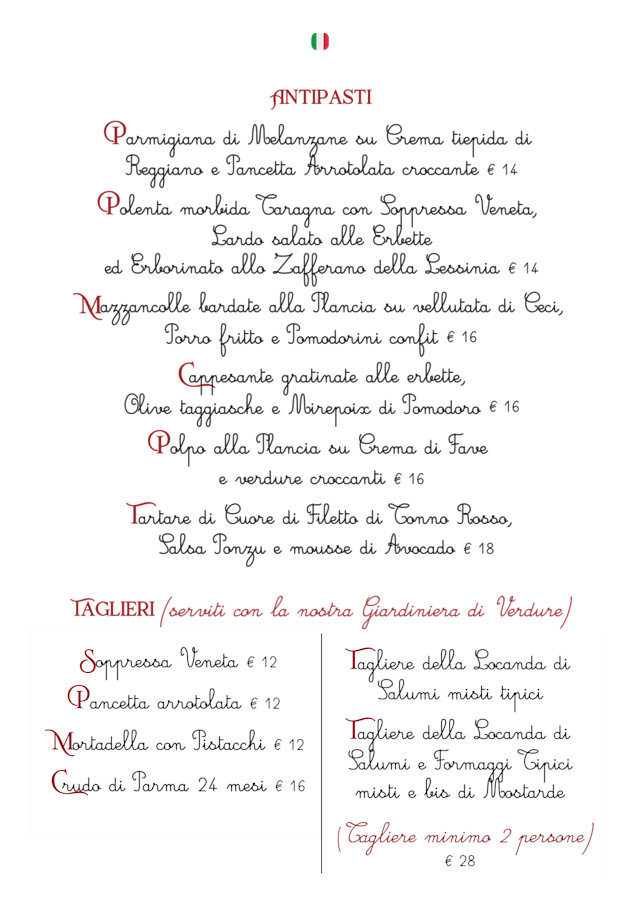 ANTIPASTI
Parmigiana di Melanzane su Crema tiepida di
Reggiano e Pancetta Arrotolata croccante € 14
Polenta morbida Taragna con Soppressa Veneta,
Lardo salato alle Erbette
ed Erborinato allo Zafferano della Lessinia € 14
Mazzancolle bardate alla Plancia su vellutata di Ceci,
Porro fritto e Pomodorini confit € 16
Cappesante gratinate alle erbette,
Olive taggiasche e Mirepoix di Pomodoro € 16
Polpo alla Plancia su Crema di Fave
e verdure croccanti € 16
Tartare di Cuore di Filetto di Tonno Rosso,
Salsa Ponzu e mousse di Avocado € 18
TAGLIERI (serviti con la nostra Giardiniera di Verdure)
Soppressa Veneta € 12
Pancetta arrotolata € 12
Mortadella con Pistacchi € 12
Crudo di Parma 24 mesi € 16
Tagliere della Locanda di
Salumi misti tipici
Tagliere della Locanda di
Salumi e Formaggi Tipici
misti e bis di Mostarde
(Tagliere minimo 2 persone)
€ 28